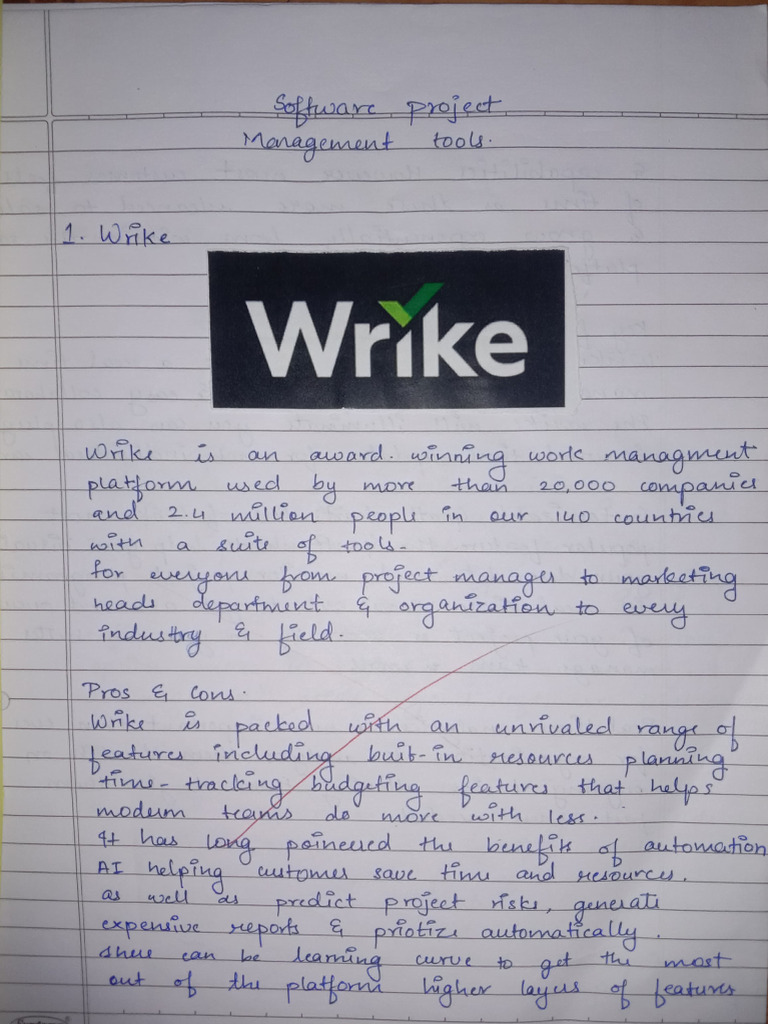 Software project
Management tools.
1. Wrike
Wrike
Wrike is an award. winning work managment
platform used by more than 20,000 companies
and 2.4 million people in our 140 countries
with a suite of tools.
for everyone from project manages to marketing
heads department & organization to every
industry & field.
Pros & Cons.
Wrike is packed with an unrivaled range of
features including buit-in resources planning
time-tracking budgeting features that helps
modern teams do more with less.
It has long poineered the benefits of automation
AI helping customer save time and resources.
as well as predict project risks, generate
expensive reports & priotize automatically.
there can be learning curve to get the most
out of the platform higher layers of features